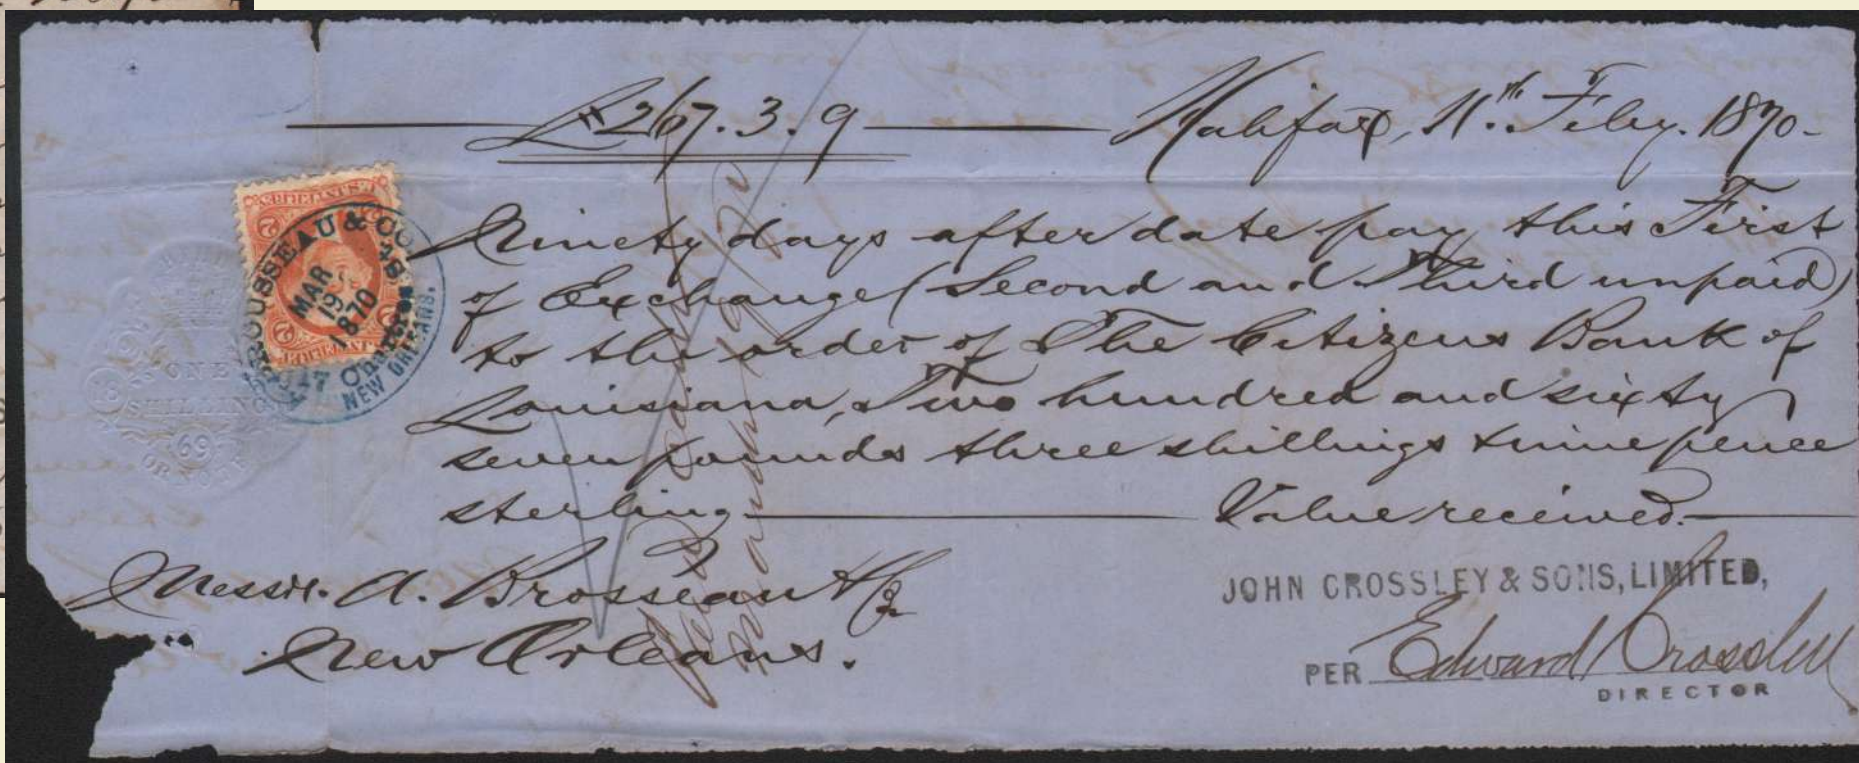 £267.3.9 Halifax, 11th. Feby. 1870-
Ninety days after date pay this First
of Exchange (Second and Third unpaid)
to the order of The Citizens Bank of
Louisiana, Two hundred and sixty
seven pounds three shillings & nine pence
sterling Value received.
Messrs. A. Brosseau & Co
New Orleans.
JOHN CROSSLEY & SONS, LIMITED,
PER Edward Crossley
DIRECTOR
BROUSSEAU & CO
MAR
19
1870
NEW ORLEANS.
ONE
SHILLING
69